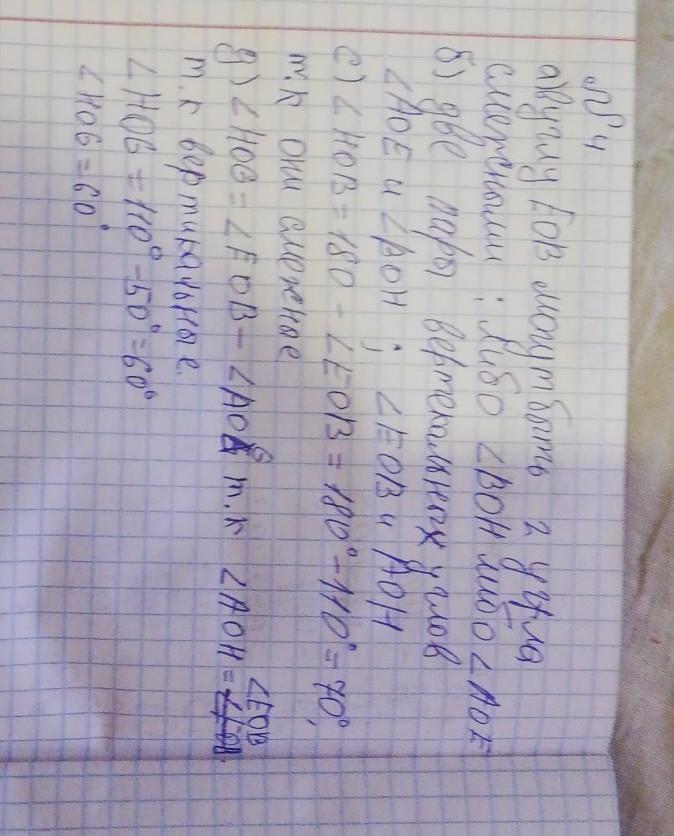 № 4
а) углу EOB могут быть 2 угла
смежными : либо ∠BOH либо ∠AOE
б) две пары вертикальных углов
∠AOE и ∠BOH ; ∠EOB и AOH
c) ∠HOB = 180 - ∠EOB = 180° - 110° = 70°,
т.к они смежные
д) ∠HOG = ∠EOB - ∠AOG т.к ∠AOH = ∠EOB
т.к вертикальные.
∠HOG = 110° - 50° = 60°
∠HOG = 60°